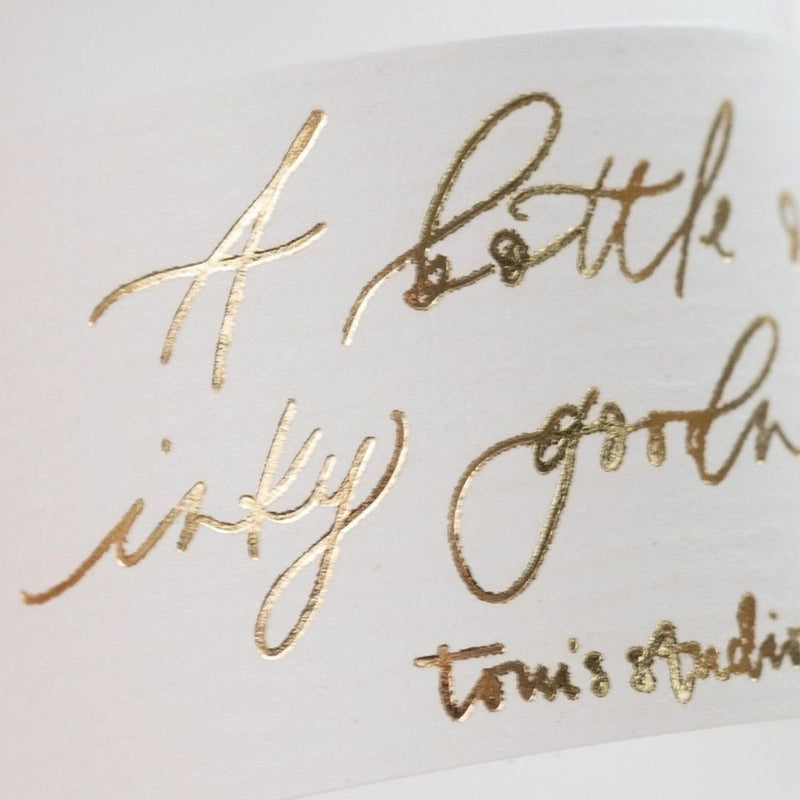 A bottle
inky goodn
toni's studio